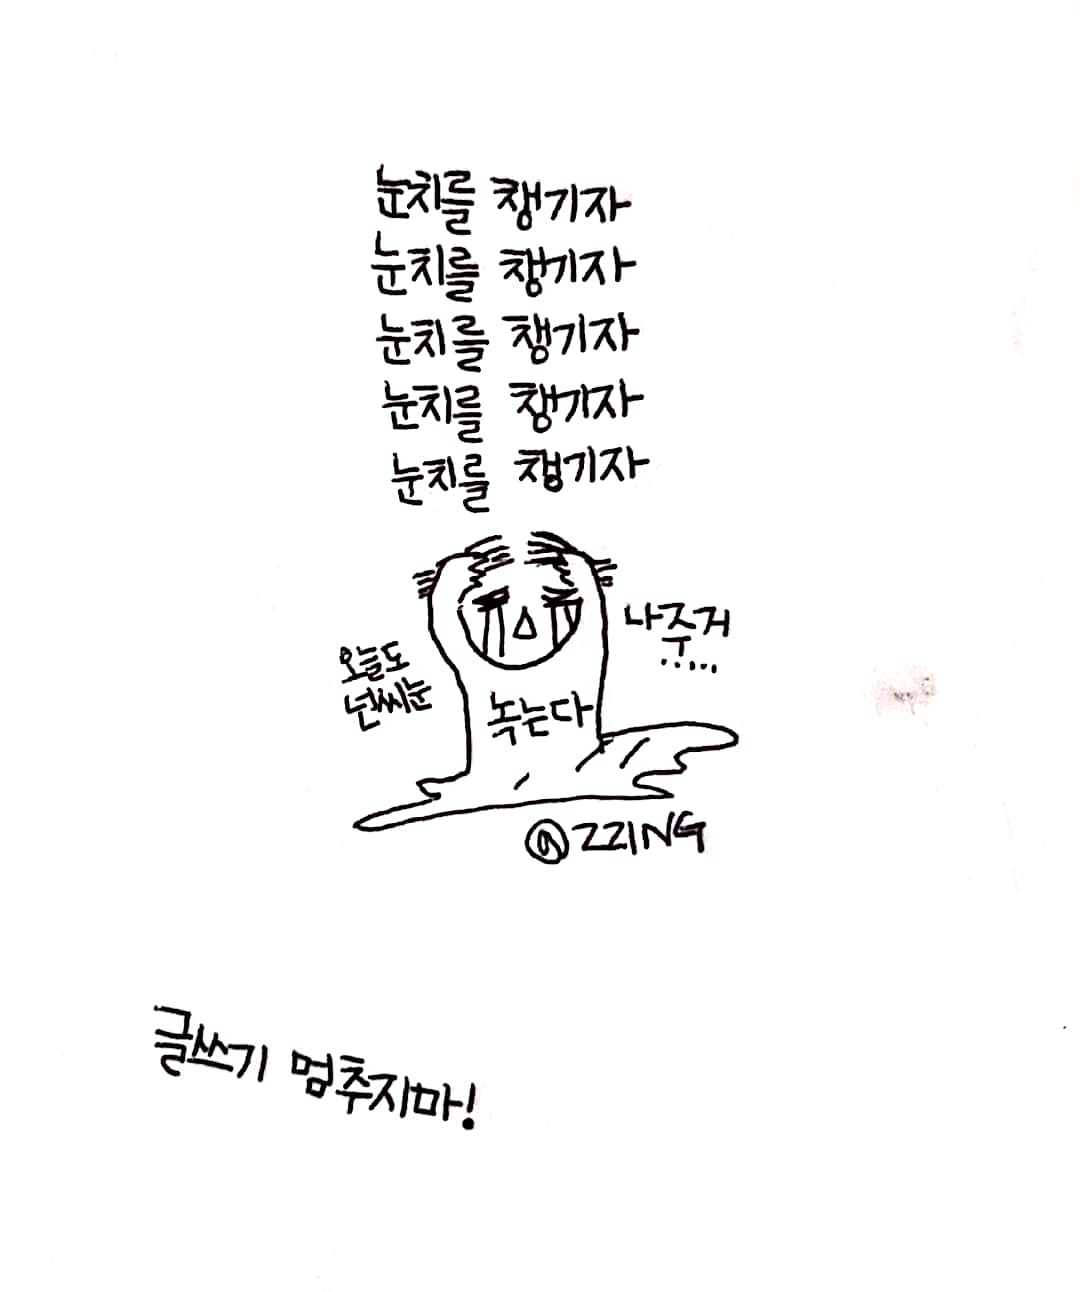 눈치를 챙기자
눈치를 챙기자
눈치를 챙기자
눈치를 챙기자
눈치를 챙기자
나주거
.....
오늘도
넌씨눈
녹는다
@ZZING
글쓰기 멈추지마!